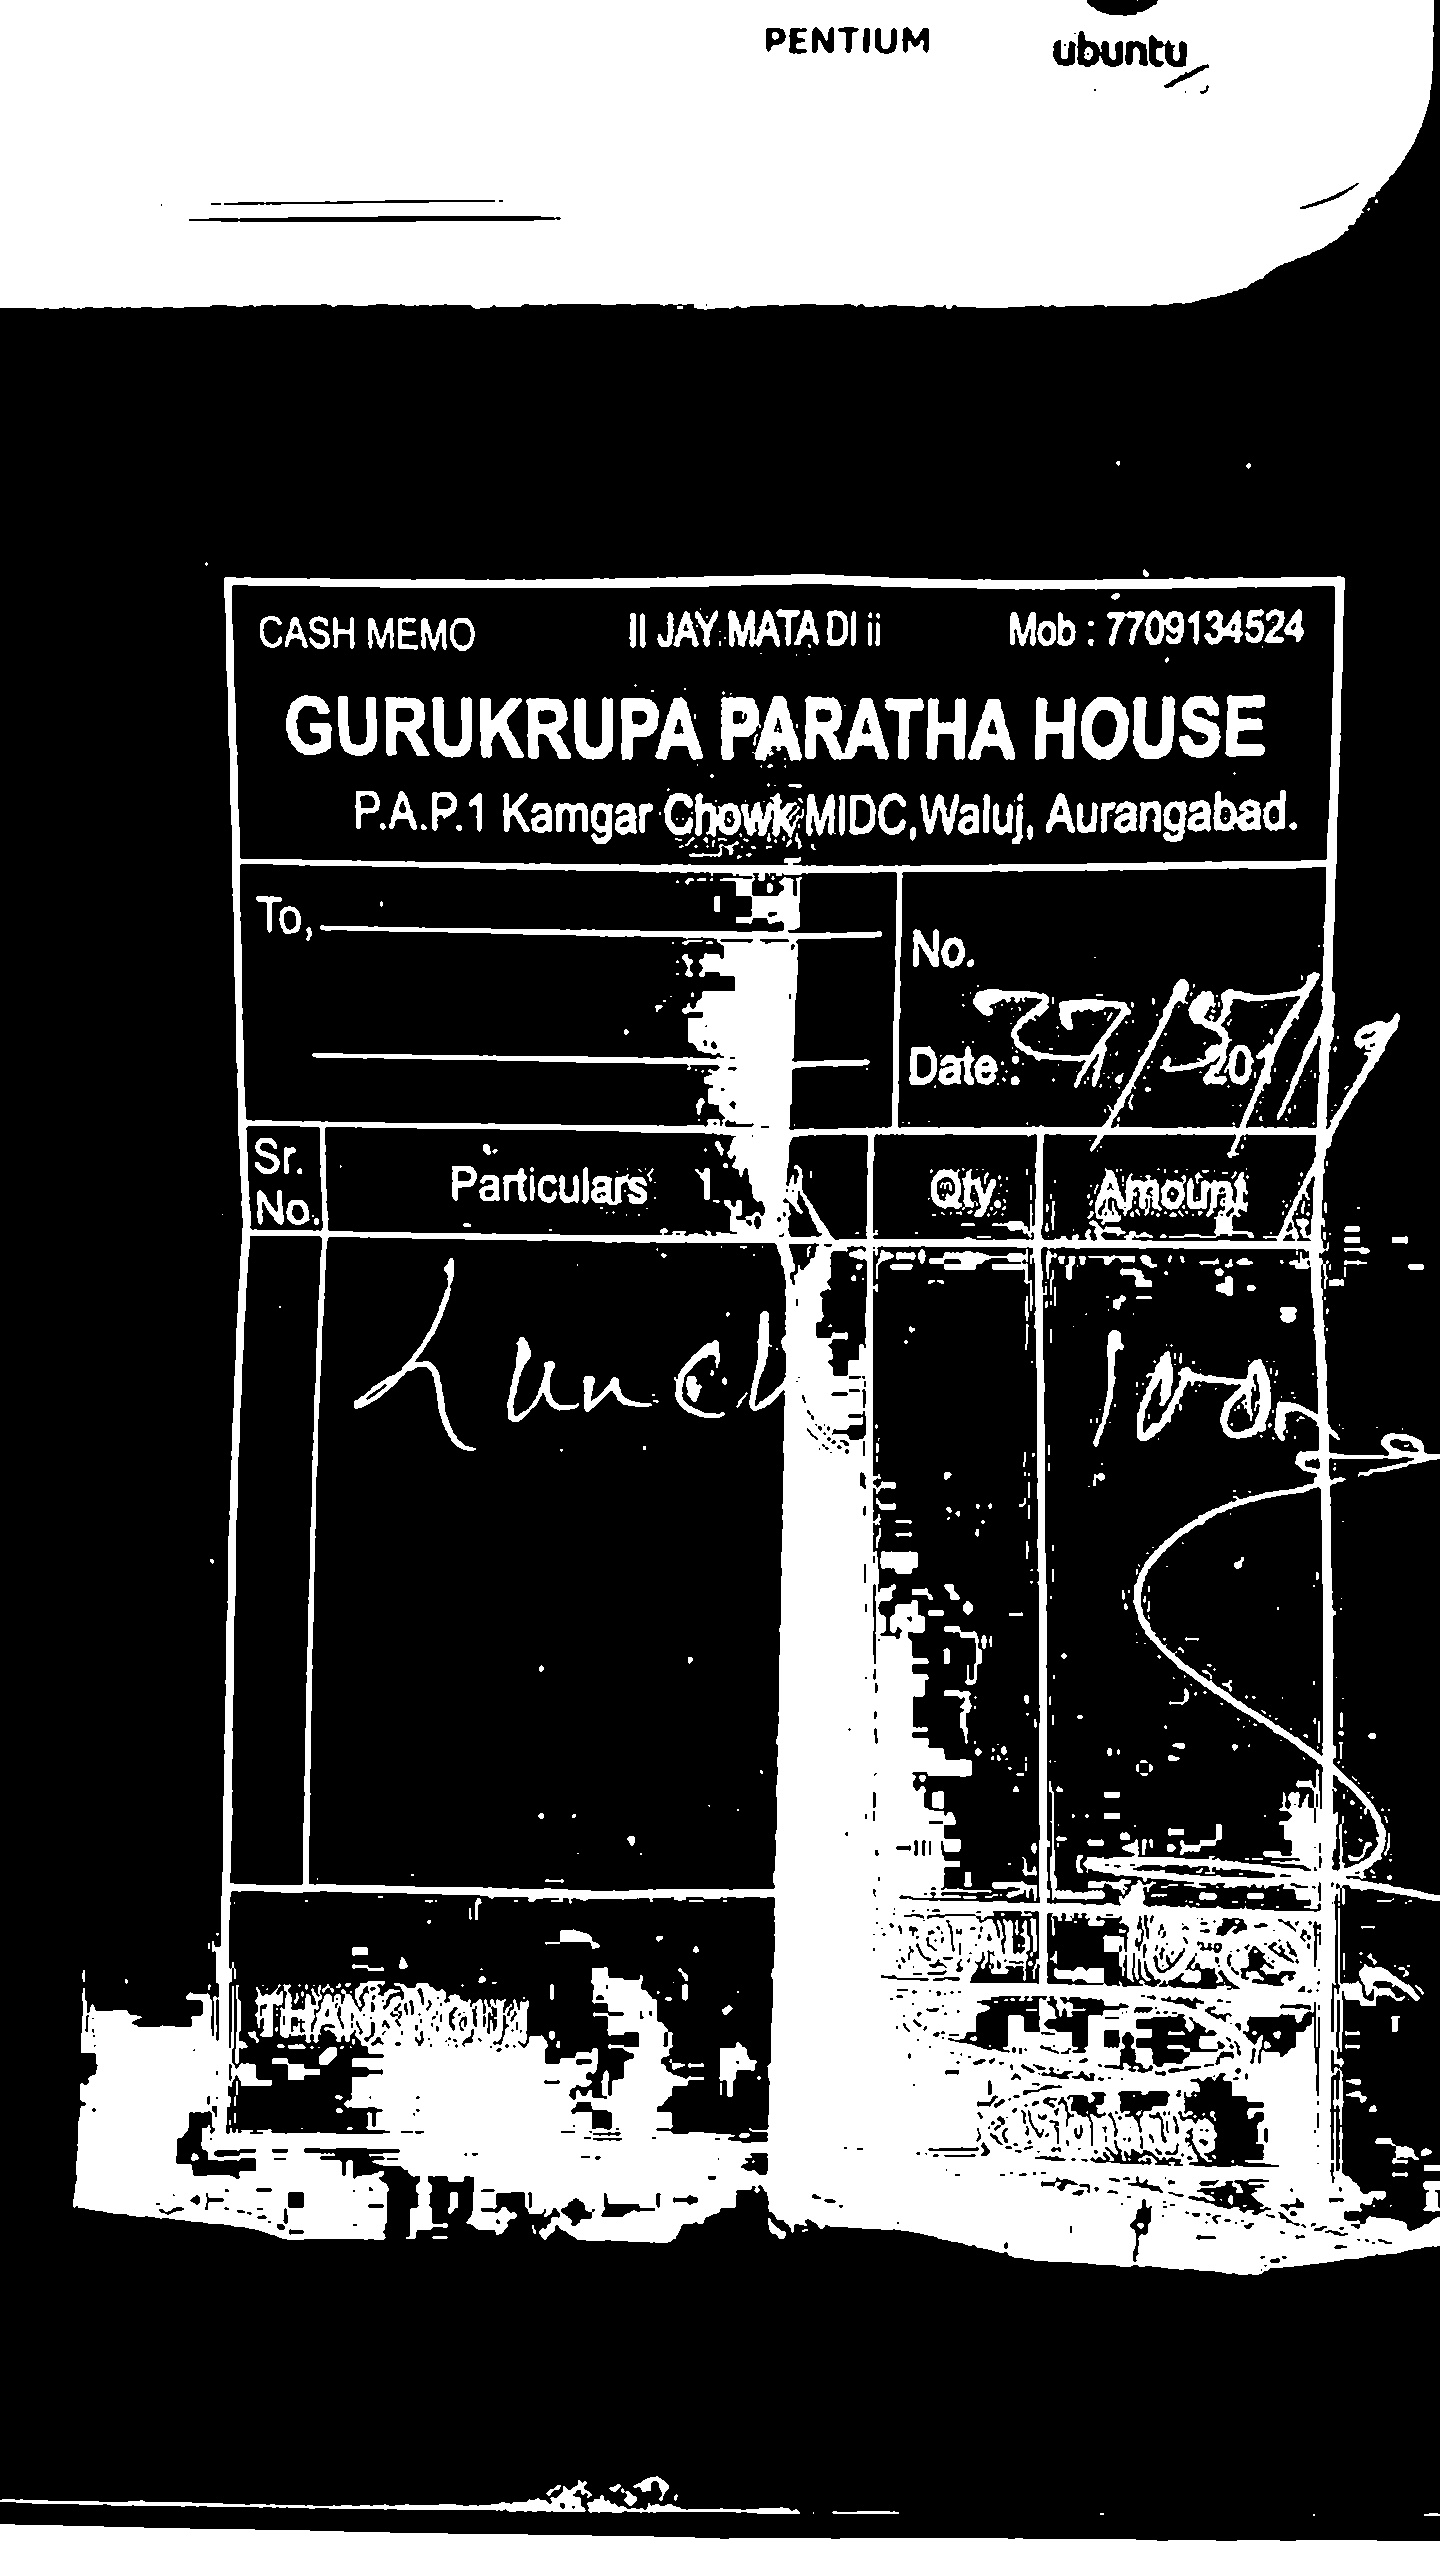 PENTIUM ubuntu
CASH MEMO II JAY MATA DI ii Mob : 7709134524
GURUKRUPA PARATHA HOUSE
P.A.P.1 Kamgar Chowk MIDC,Waluj, Aurangabad.
To,
No.
Date : 27/5/19 201
Sr. No. Particulars Qty. Amount
Lunch 100
TOTAL 100
THANK YOU!
Signature